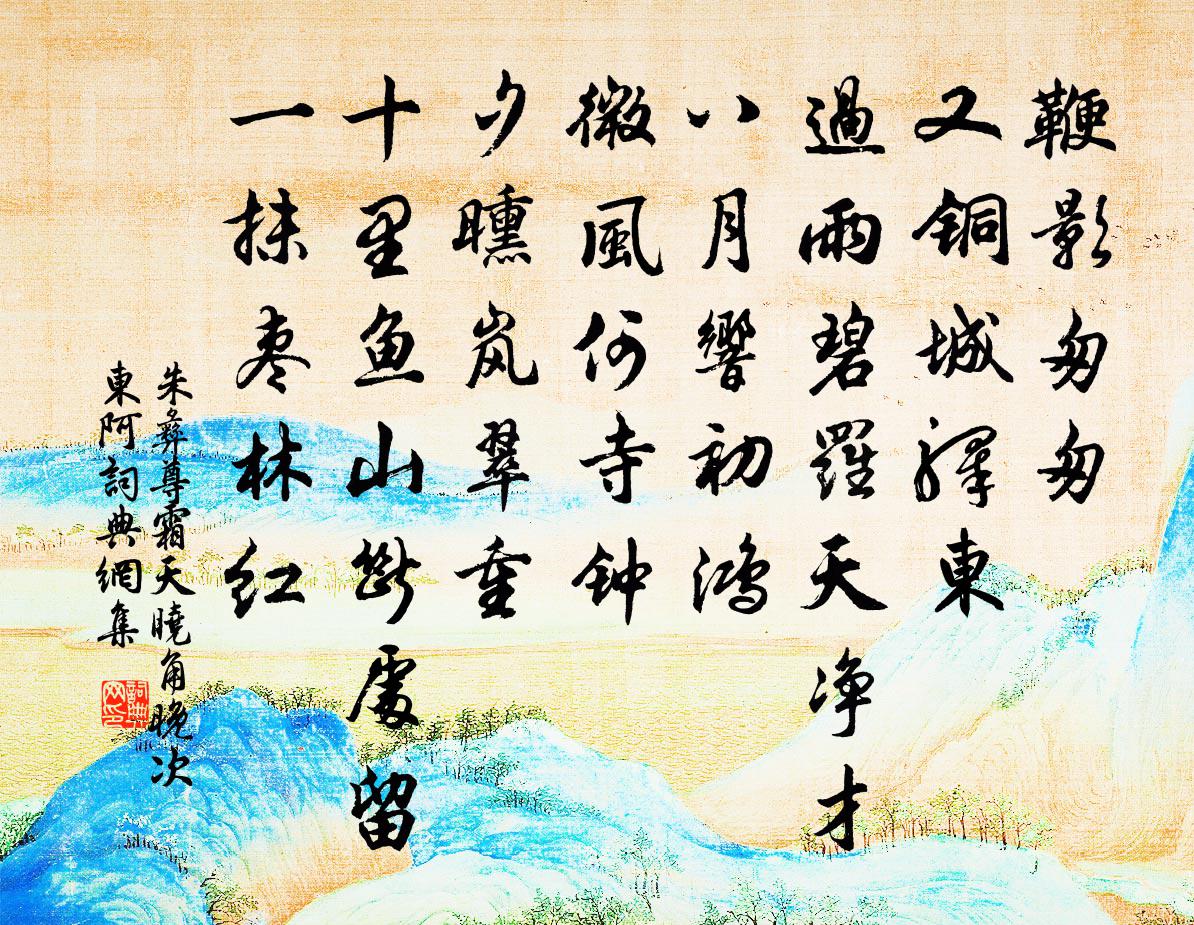 鞭影匆匆
又铜城驛東
過雨碧羅天净才
八月響初鴻
微風何寺钟
夕曛岚翠重
十里魚山斷處留
一抹枣林红
朱彝尊霜天曉角晚次
東阿詞典網集
詞典网印